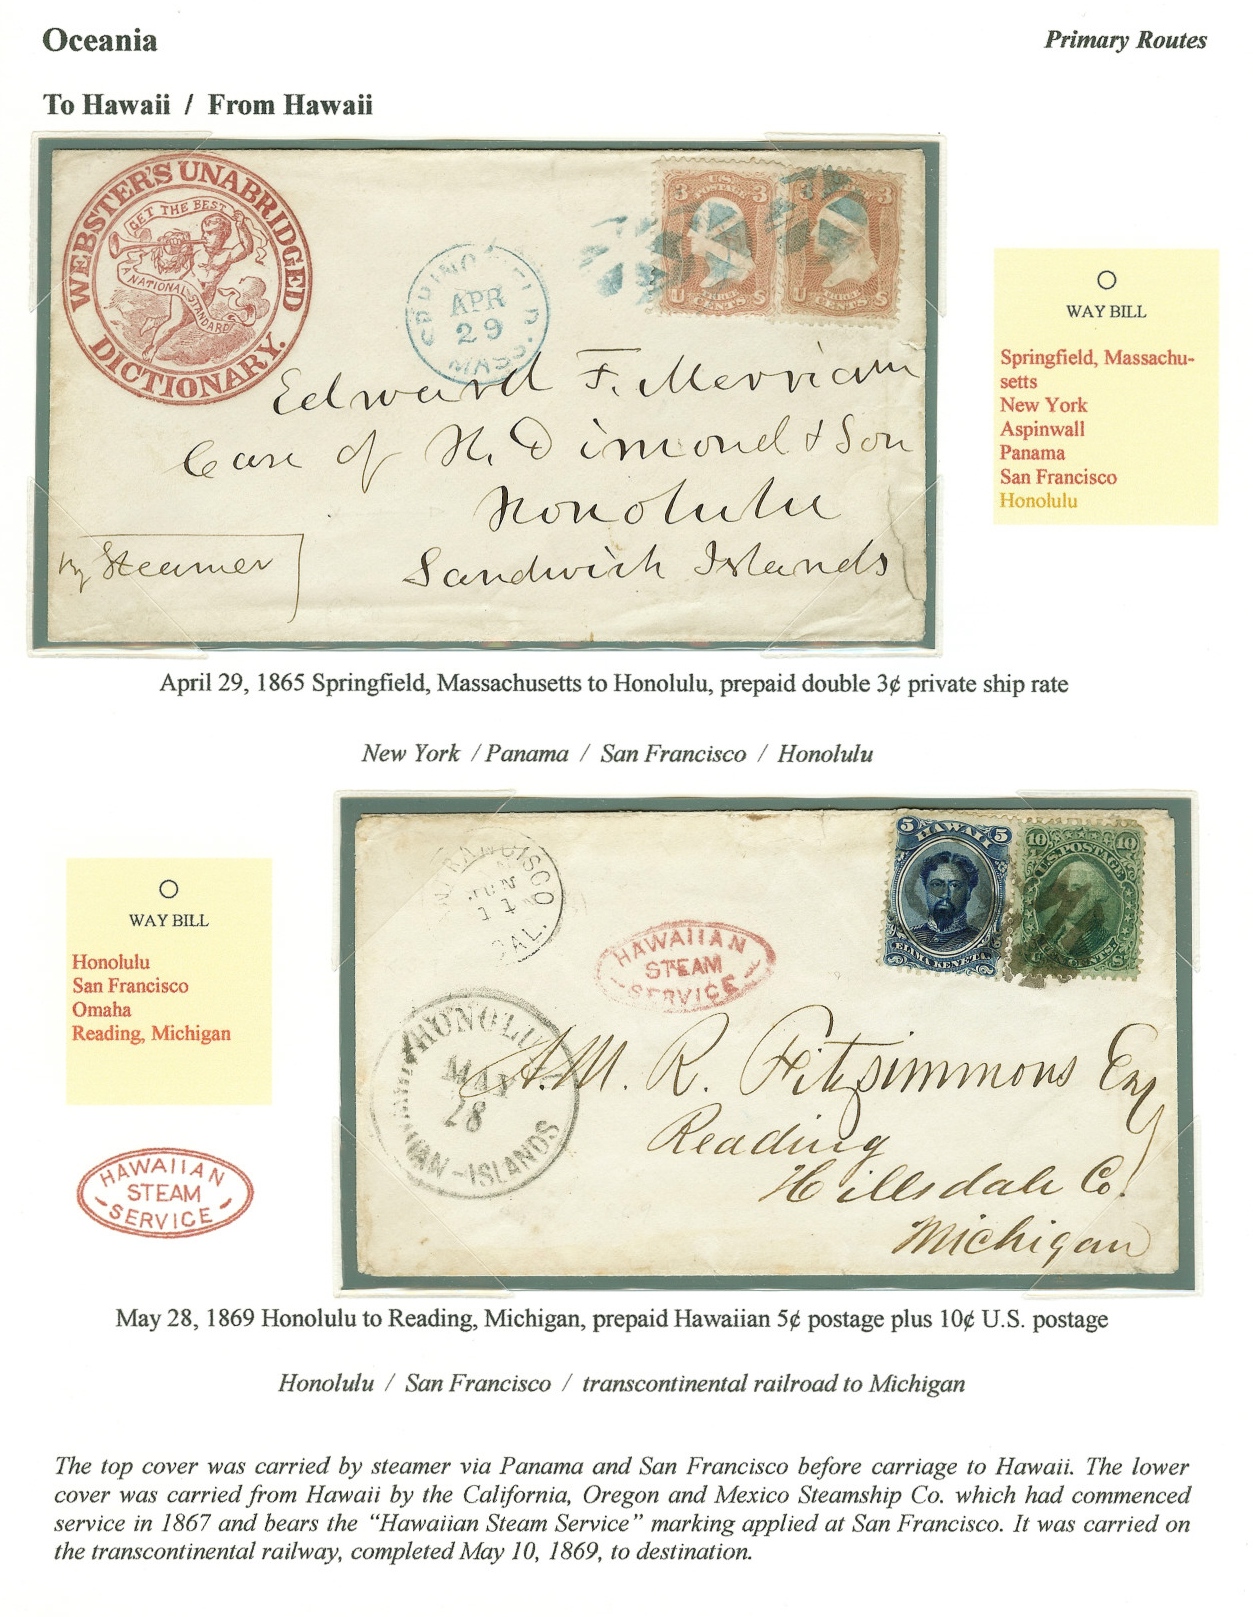 Oceania
Primary Routes
To Hawaii / From Hawaii
WEBSTER'S UNABRIDGED
DICTIONARY.
GET THE BEST
A NATIONAL STANDARD
SPRINGFIELD
APR
29
MASS.
3 U.S. POSTAGE 3
U THREE CENTS S
3 3
U CENTS S
Edward F. Merriam
Care of H. Dimond & Son
Honolulu
Sandwich Islands
by Steamer
WAY BILL
Springfield, Massachu-
setts
New York
Aspinwall
Panama
San Francisco
Honolulu
April 29, 1865 Springfield, Massachusetts to Honolulu, prepaid double 3¢ private ship rate
New York / Panama / San Francisco / Honolulu
WAY BILL
Honolulu
San Francisco
Omaha
Reading, Michigan
HAWAIIAN
STEAM
SERVICE
SAN FRANCISCO
JUN
11
CAL.
HAWAIIAN
STEAM
SERVICE
5 HAWAII 5
ELIMA KENETA
10 U.S. POSTAGE 10
HONOLULU
MAY
28
HAWAIIAN-ISLANDS
A.M. R. Fitzsimmons Esq
Reading
Hillsdale Co.
Michigan
May 28, 1869 Honolulu to Reading, Michigan, prepaid Hawaiian 5¢ postage plus 10¢ U.S. postage
Honolulu / San Francisco / transcontinental railroad to Michigan
The top cover was carried by steamer via Panama and San Francisco before carriage to Hawaii. The lower
cover was carried from Hawaii by the California, Oregon and Mexico Steamship Co. which had commenced
service in 1867 and bears the “Hawaiian Steam Service” marking applied at San Francisco. It was carried on
the transcontinental railway, completed May 10, 1869, to destination.